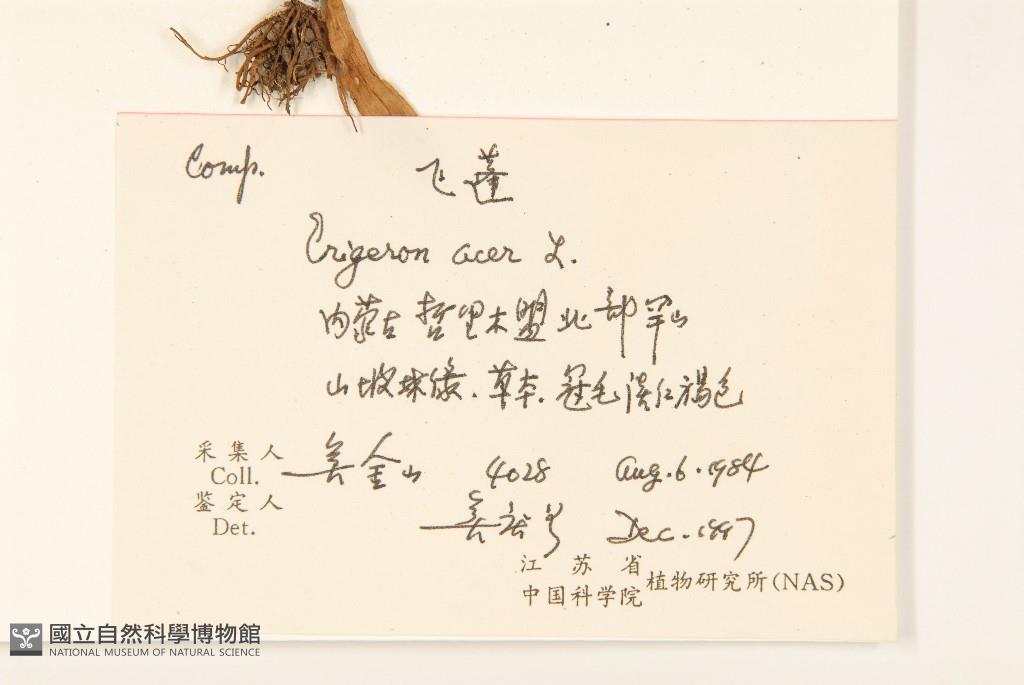 Comp. 飞蓬
Erigeron acer L.
内蒙古 哲里木盟北部罕山
山坡林缘.草本.冠毛淡红褐色
采集人
Coll. 金山 4028 Aug.6.1984
鉴定人
Det. Dec.1997
江苏省
中国科学院 植物研究所(NAS)
國立自然科學博物館
NATIONAL MUSEUM OF NATURAL SCIENCE